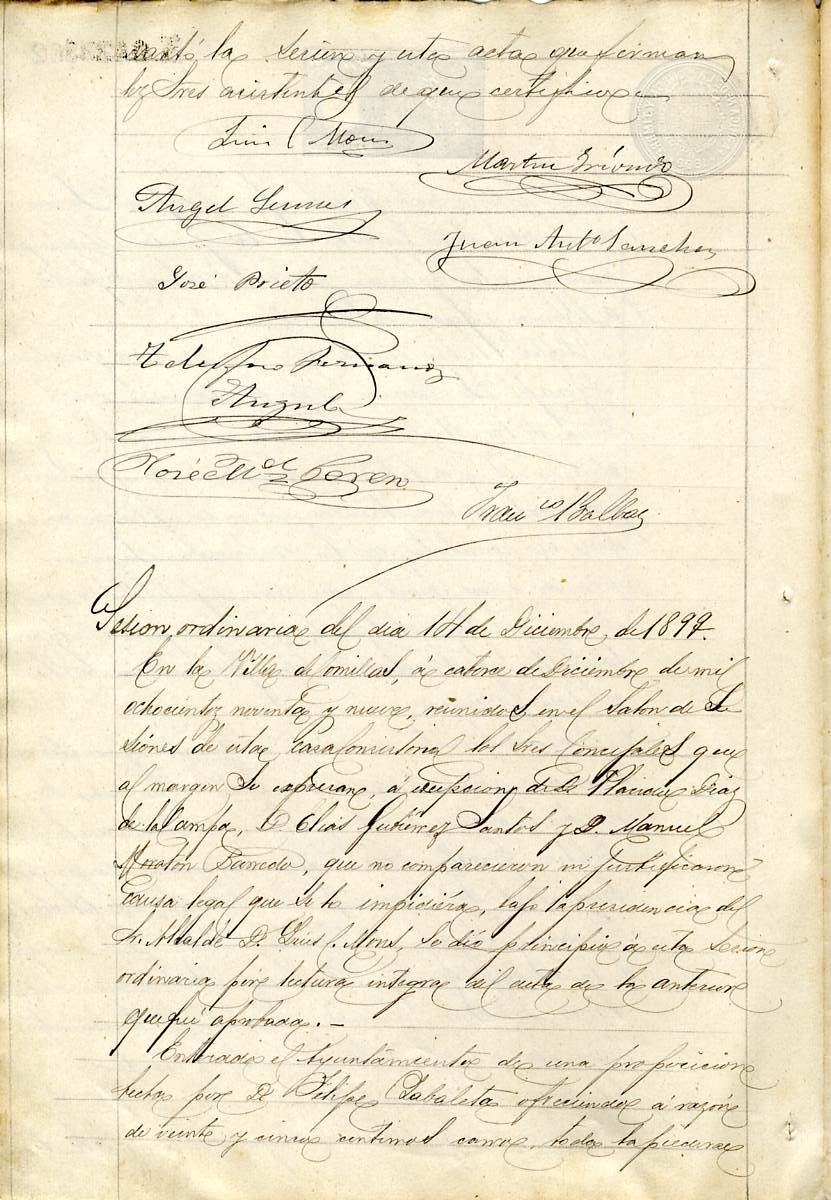 la sesion y esta acta que firman
los Sres asistentes de que certifico.
Luis C Mons
Martin
Angel
Juan Ant.º Sanchez
José Prieto
Fernandez
Angul
José M.
Fran.co Balbas
Sesion ordinaria del dia 14 de Diciembre, de 1899.
En la Villa de Comillas, á catorce de Diciembre de mil
ochocientos noventa y nueve, reunidos en el Salon de Se
siones de esta Casa Consistorial los Sres Concejales que
al margen se expresan, á excepcion de D. Placido Diaz
de la Campa, D. Elias Gutierrez Santos y D. Manuel
Barreda, que no comparecieron ni justificaron
causa legal que se lo impidiéra, bajo la presidencia del
Sr. Alcalde D. Luis C. Mons, se dió principio á esta sesion
ordinaria por lectura integra del acta de la anterior
que fué aprobada. —
Enterado el Ayuntamiento de una proposicion
hecha por D. Felipe Zabaleta ofreciendo á razón
de veinte y cinco centimos carro, toda la piedra